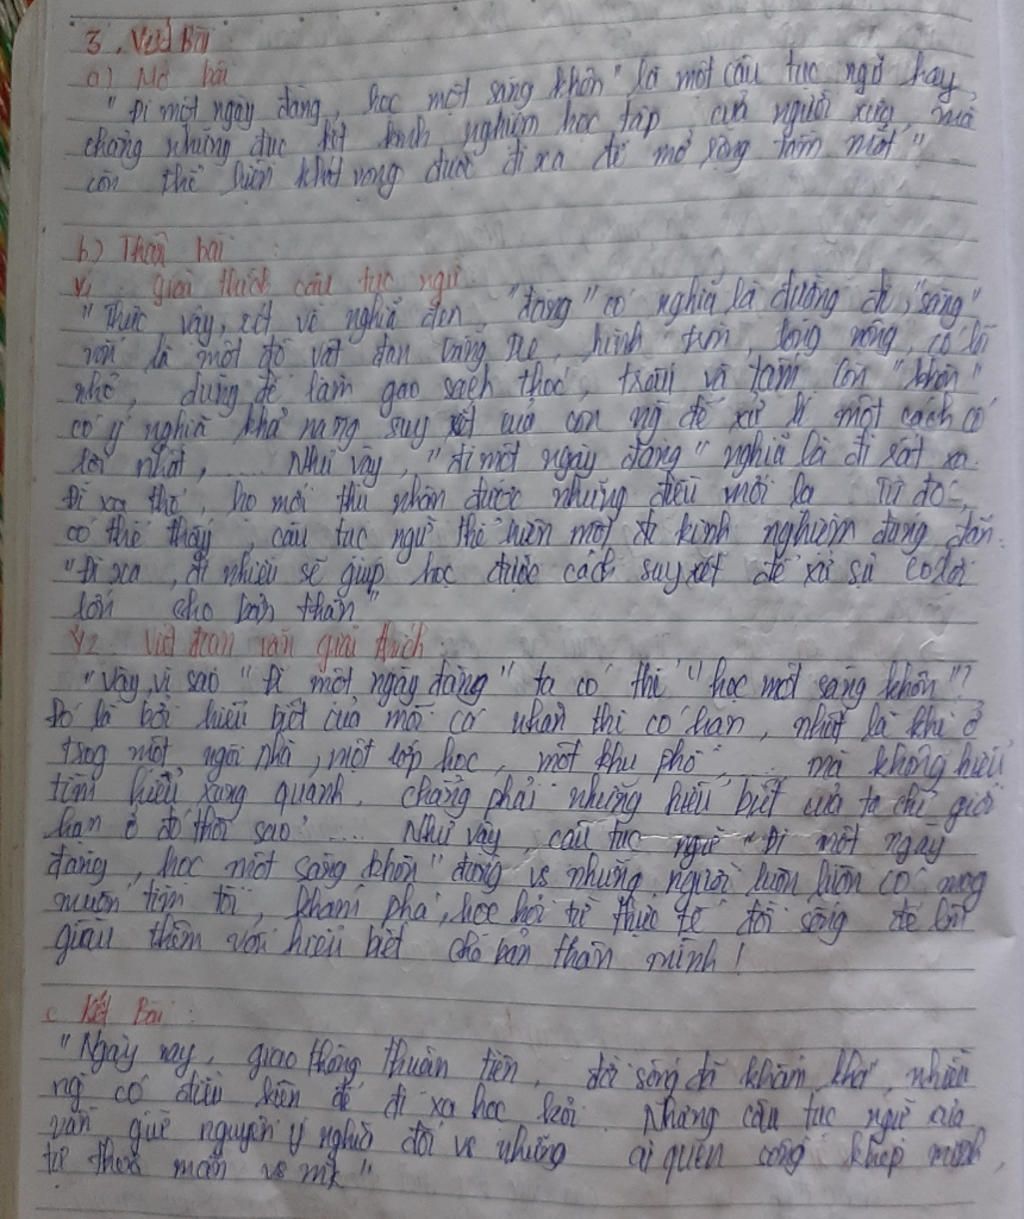 3. Viết Bài
a) Mở bài
"Đi một ngày đàng, học một sàng khôn" là một câu tục ngữ hay,
chẳng những đúc kết kinh nghiệm học tập của người xưa, mà
còn thể hiện khát vọng được đi xa để mở rộng tầm mắt"
b) Thân bài:
giải thích câu tục ngữ
"Thực vậy, xét về nghĩa đen "đàng" có nghĩa là đường đi, "sàng"
vốn là một đồ vật đan bằng tre, hình tròn, lòng nông, có lỗ
nhỏ, dùng để làm gạo sạch thóc, trấu và tấm còn "khôn"
có ý nghĩa khả năng suy xét của con ng để xử lí một cách có
lợi nhất, .... Như vậy, "đi một ngày đàng" nghĩa là đi rất xa.
Đi xa thế, họ mới thu nhận được những điều mới lạ. Từ đó,
có thể thấy, câu tục ngữ thể hiện một kinh nghiệm đúng đắn:
"Đi xa, đi nhiều sẽ giúp học được cách suy xét để xử sự có lợi
lớn cho bản thân"
Viết đoạn văn giải thích:
"Vậy, vì sao "Đi một ngày đàng" ta có thể "học một sàng khôn"?
Đó là bởi hiểu biết của mỗi cá nhân thì có hạn, nhất là khi ở
trog một ngôi nhà, một lớp học, một khu phố, .... mà không
tìm hiểu xung quanh. Chẳng phải những hiểu biết của ta chỉ giới
hạn ở đó thôi sao? .... Như vậy, câu tục ngữ "Đi một ngày
đàng, học một sàng khôn" đúng vs những người luôn luôn có mong
muốn tìm tòi, khám phá, học hỏi từ thực tế đời sống để làm
giàu thêm vốn hiểu biết cho bản thân mình!
c Kết Bài:
"Ngày nay, giao thông thuận tiện, đời sống đã khấm khá, nhiều
ng có điều kiện để đi xa học hỏi. Nhưng câu tục ngữ
vẫn giữ nguyên ý nghĩa đối vs những ai quen sống khép mình,
tự thoả mãn vs mk"